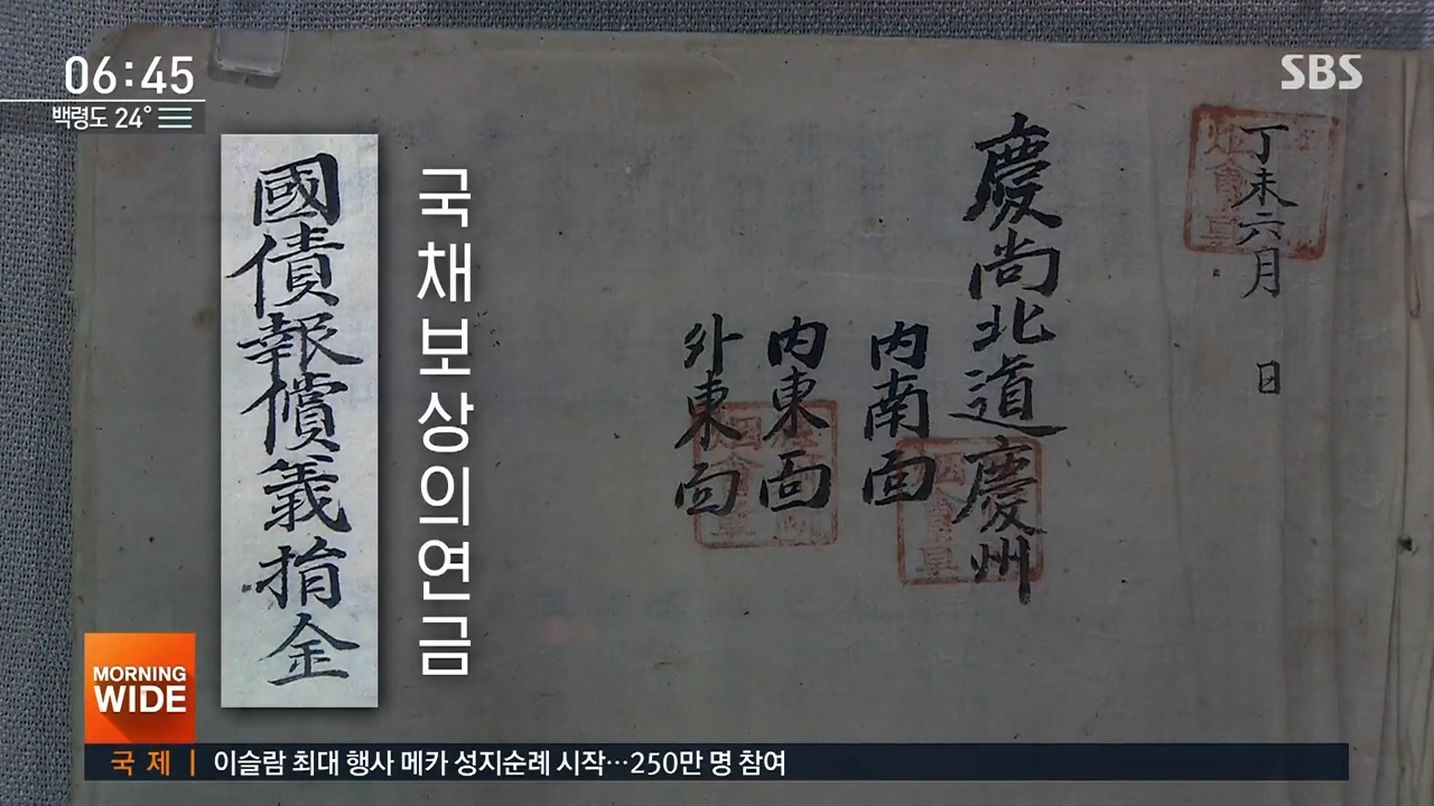 06:45
백령도 24°
SBS
丁未六月 日
慶尚北道慶州
内南面
内東面
外東面
국채보상의연금
國債報償義捐金
MORNING
WIDE
국제 | 이슬람 최대 행사 메카 성지순례 시작…250만 명 참여